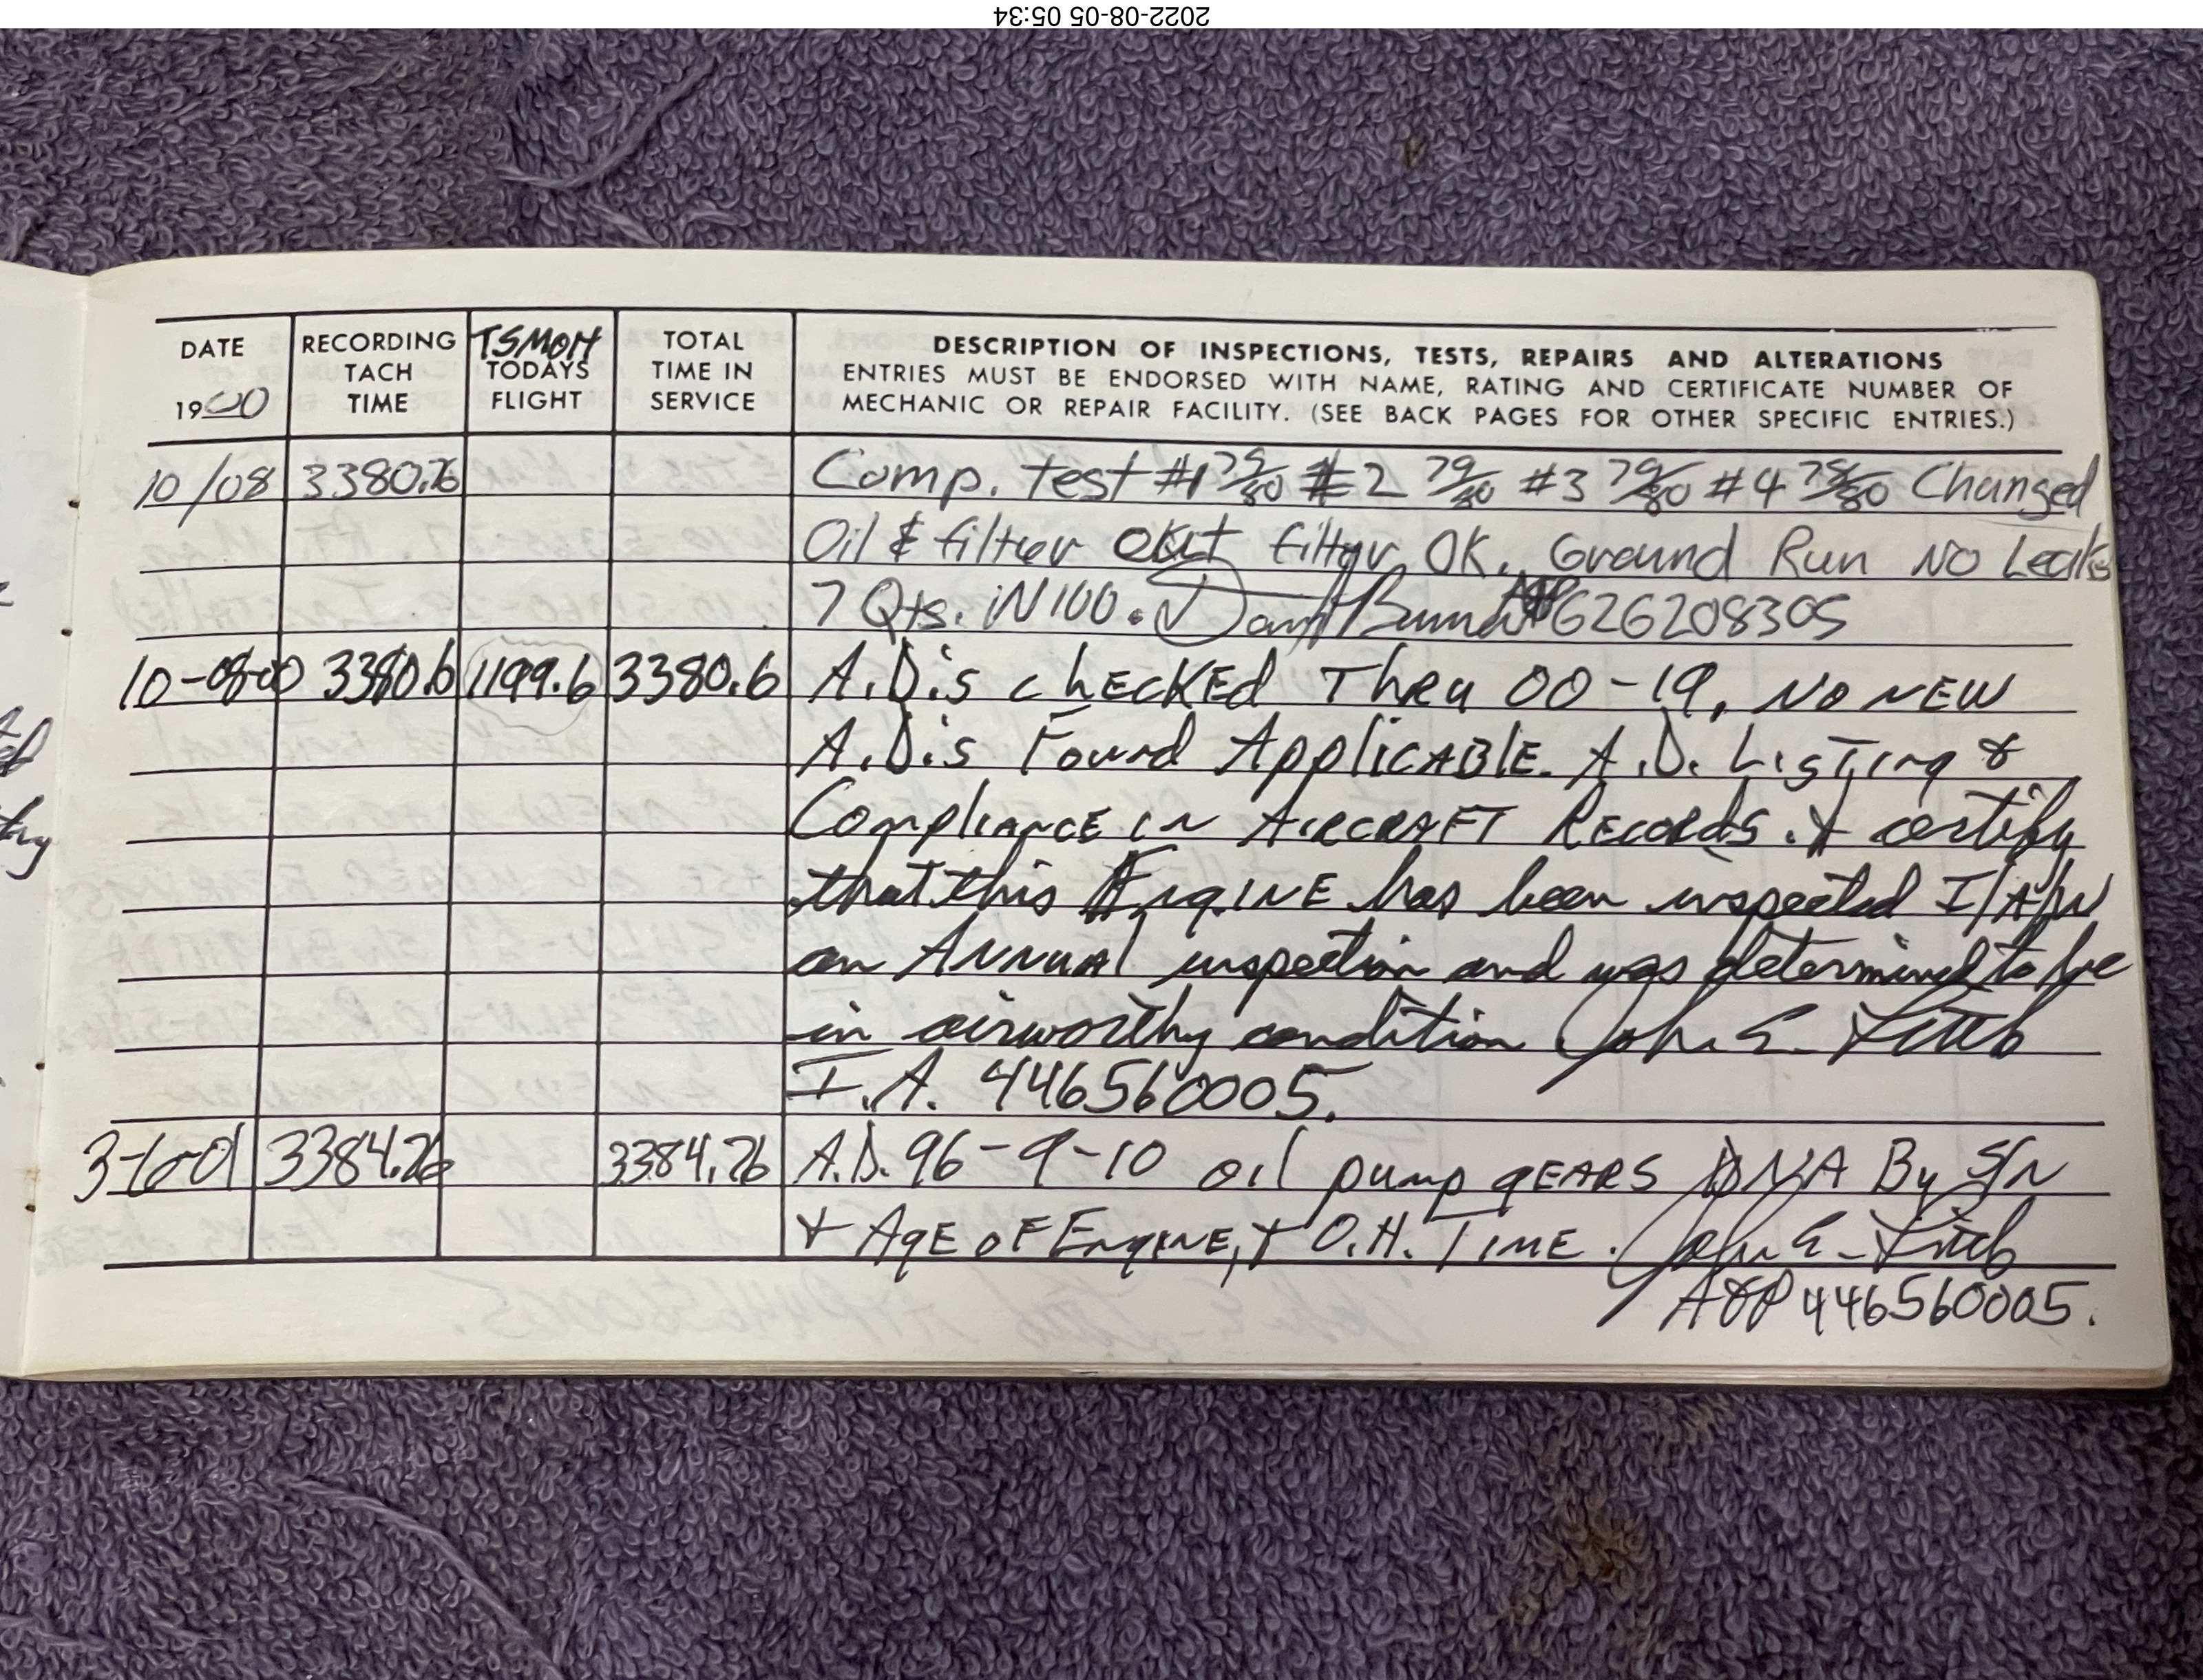 2022-08-05 05:34
DATE
1900
RECORDING
TACH
TIME
TSMOH
TODAYS
FLIGHT
TOTAL
TIME IN
SERVICE
DESCRIPTION OF INSPECTIONS, TESTS, REPAIRS AND ALTERATIONS
ENTRIES MUST BE ENDORSED WITH NAME, RATING AND CERTIFICATE NUMBER OF
MECHANIC OR REPAIR FACILITY. (SEE BACK PAGES FOR OTHER SPECIFIC ENTRIES.)
10/08 3380.76 Comp. test #1 79/80 #2 79/80 #3 79/80 #4 78/80 Changed
Oil & filter filter OK. Ground Run NO Leaks
7 Qts. iN 100. 626208305
10-08-00 3380.6 1199.6 3380.6 A.D.s chEcKEd Thru 00-19, No NEW
A.D.s Found ApplicABlE. A.D. ListIng &
ComplIancE in AIRCRAFT REcoRds. I certify
that this EngINE has been inspected I/A/W
an ANNuAl inspection and was determined to be
in airworthy condition John E. Fitch
I.A. 446560005.
3-6-01 3384.76 3384.76 A.D. 96-9-10 oil pump gEARS DNA By S/N
+ AgE oF EngINE, + O.H. TIME. John E. Fitch
A&P 446560005.